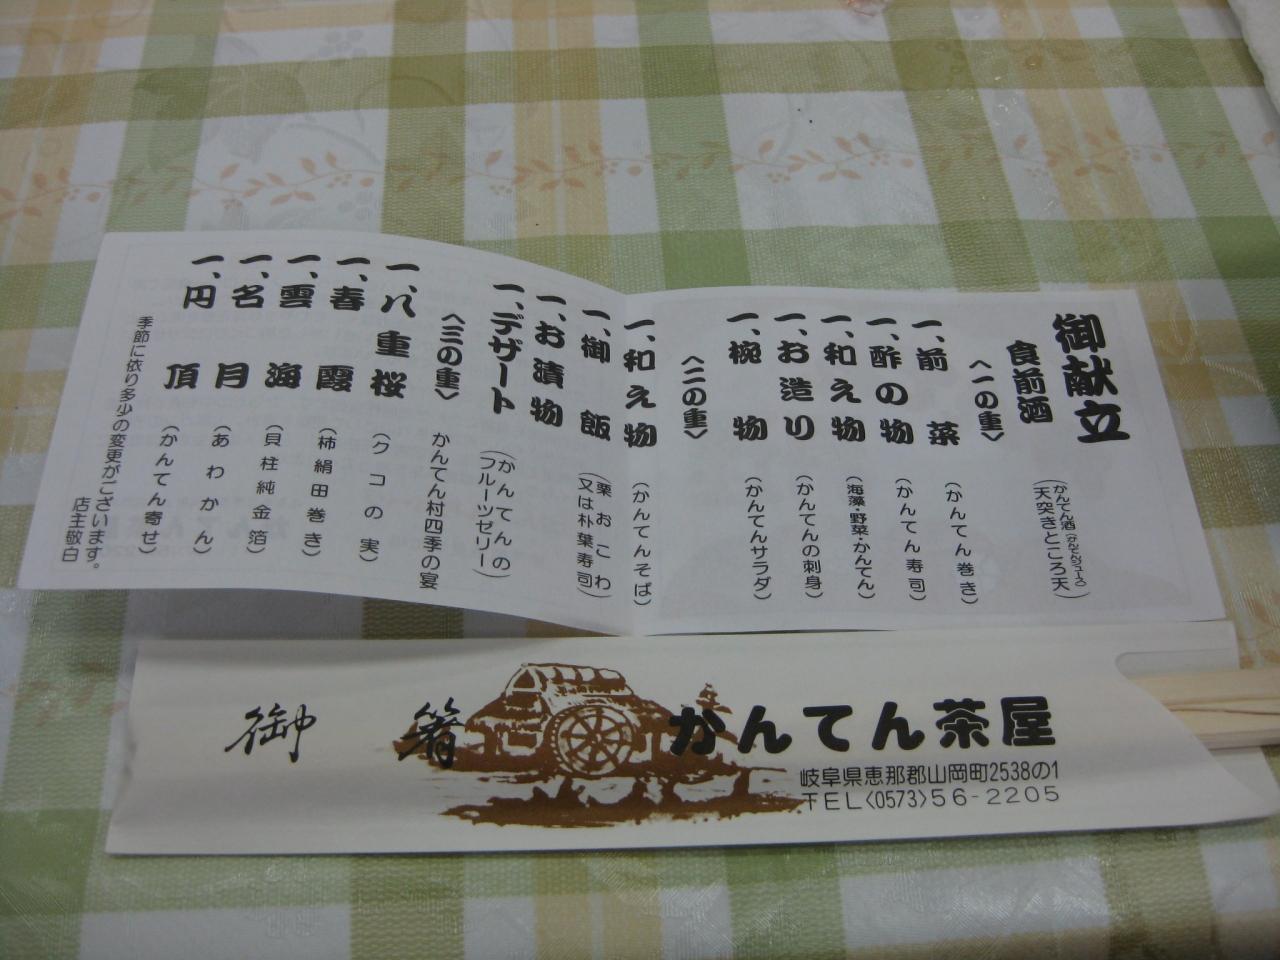 御献立
食前酒
(かんてん酒(かんてんジュース)
天突きところ天)
〈一の重〉
一、前菜(かんてん巻き)
一、酢の物(かんてん寿司)
一、和え物(海藻・野菜・かんてん)
一、お造り(かんてんの刺身)
一、椀物(かんてんサラダ)
〈二の重〉
一、和え物(かんてんそば)
一、御飯(栗おこわ
又は朴葉寿司)
一、お漬物
一、デザート(かんてんの
フルーツゼリー)
〈三の重〉かんてん村四季の宴
一、八重桜(クコの実)
一、春霞(柿絹田巻き)
一、雲海(貝柱純金箔)
一、名月(あわかん)
一、円頂(かんてん寄せ)
季節に依り多少の変更がございます。
店主敬白
御箸
かんてん茶屋
岐阜県恵那郡山岡町2538の1
TEL〈0573〉56-2205